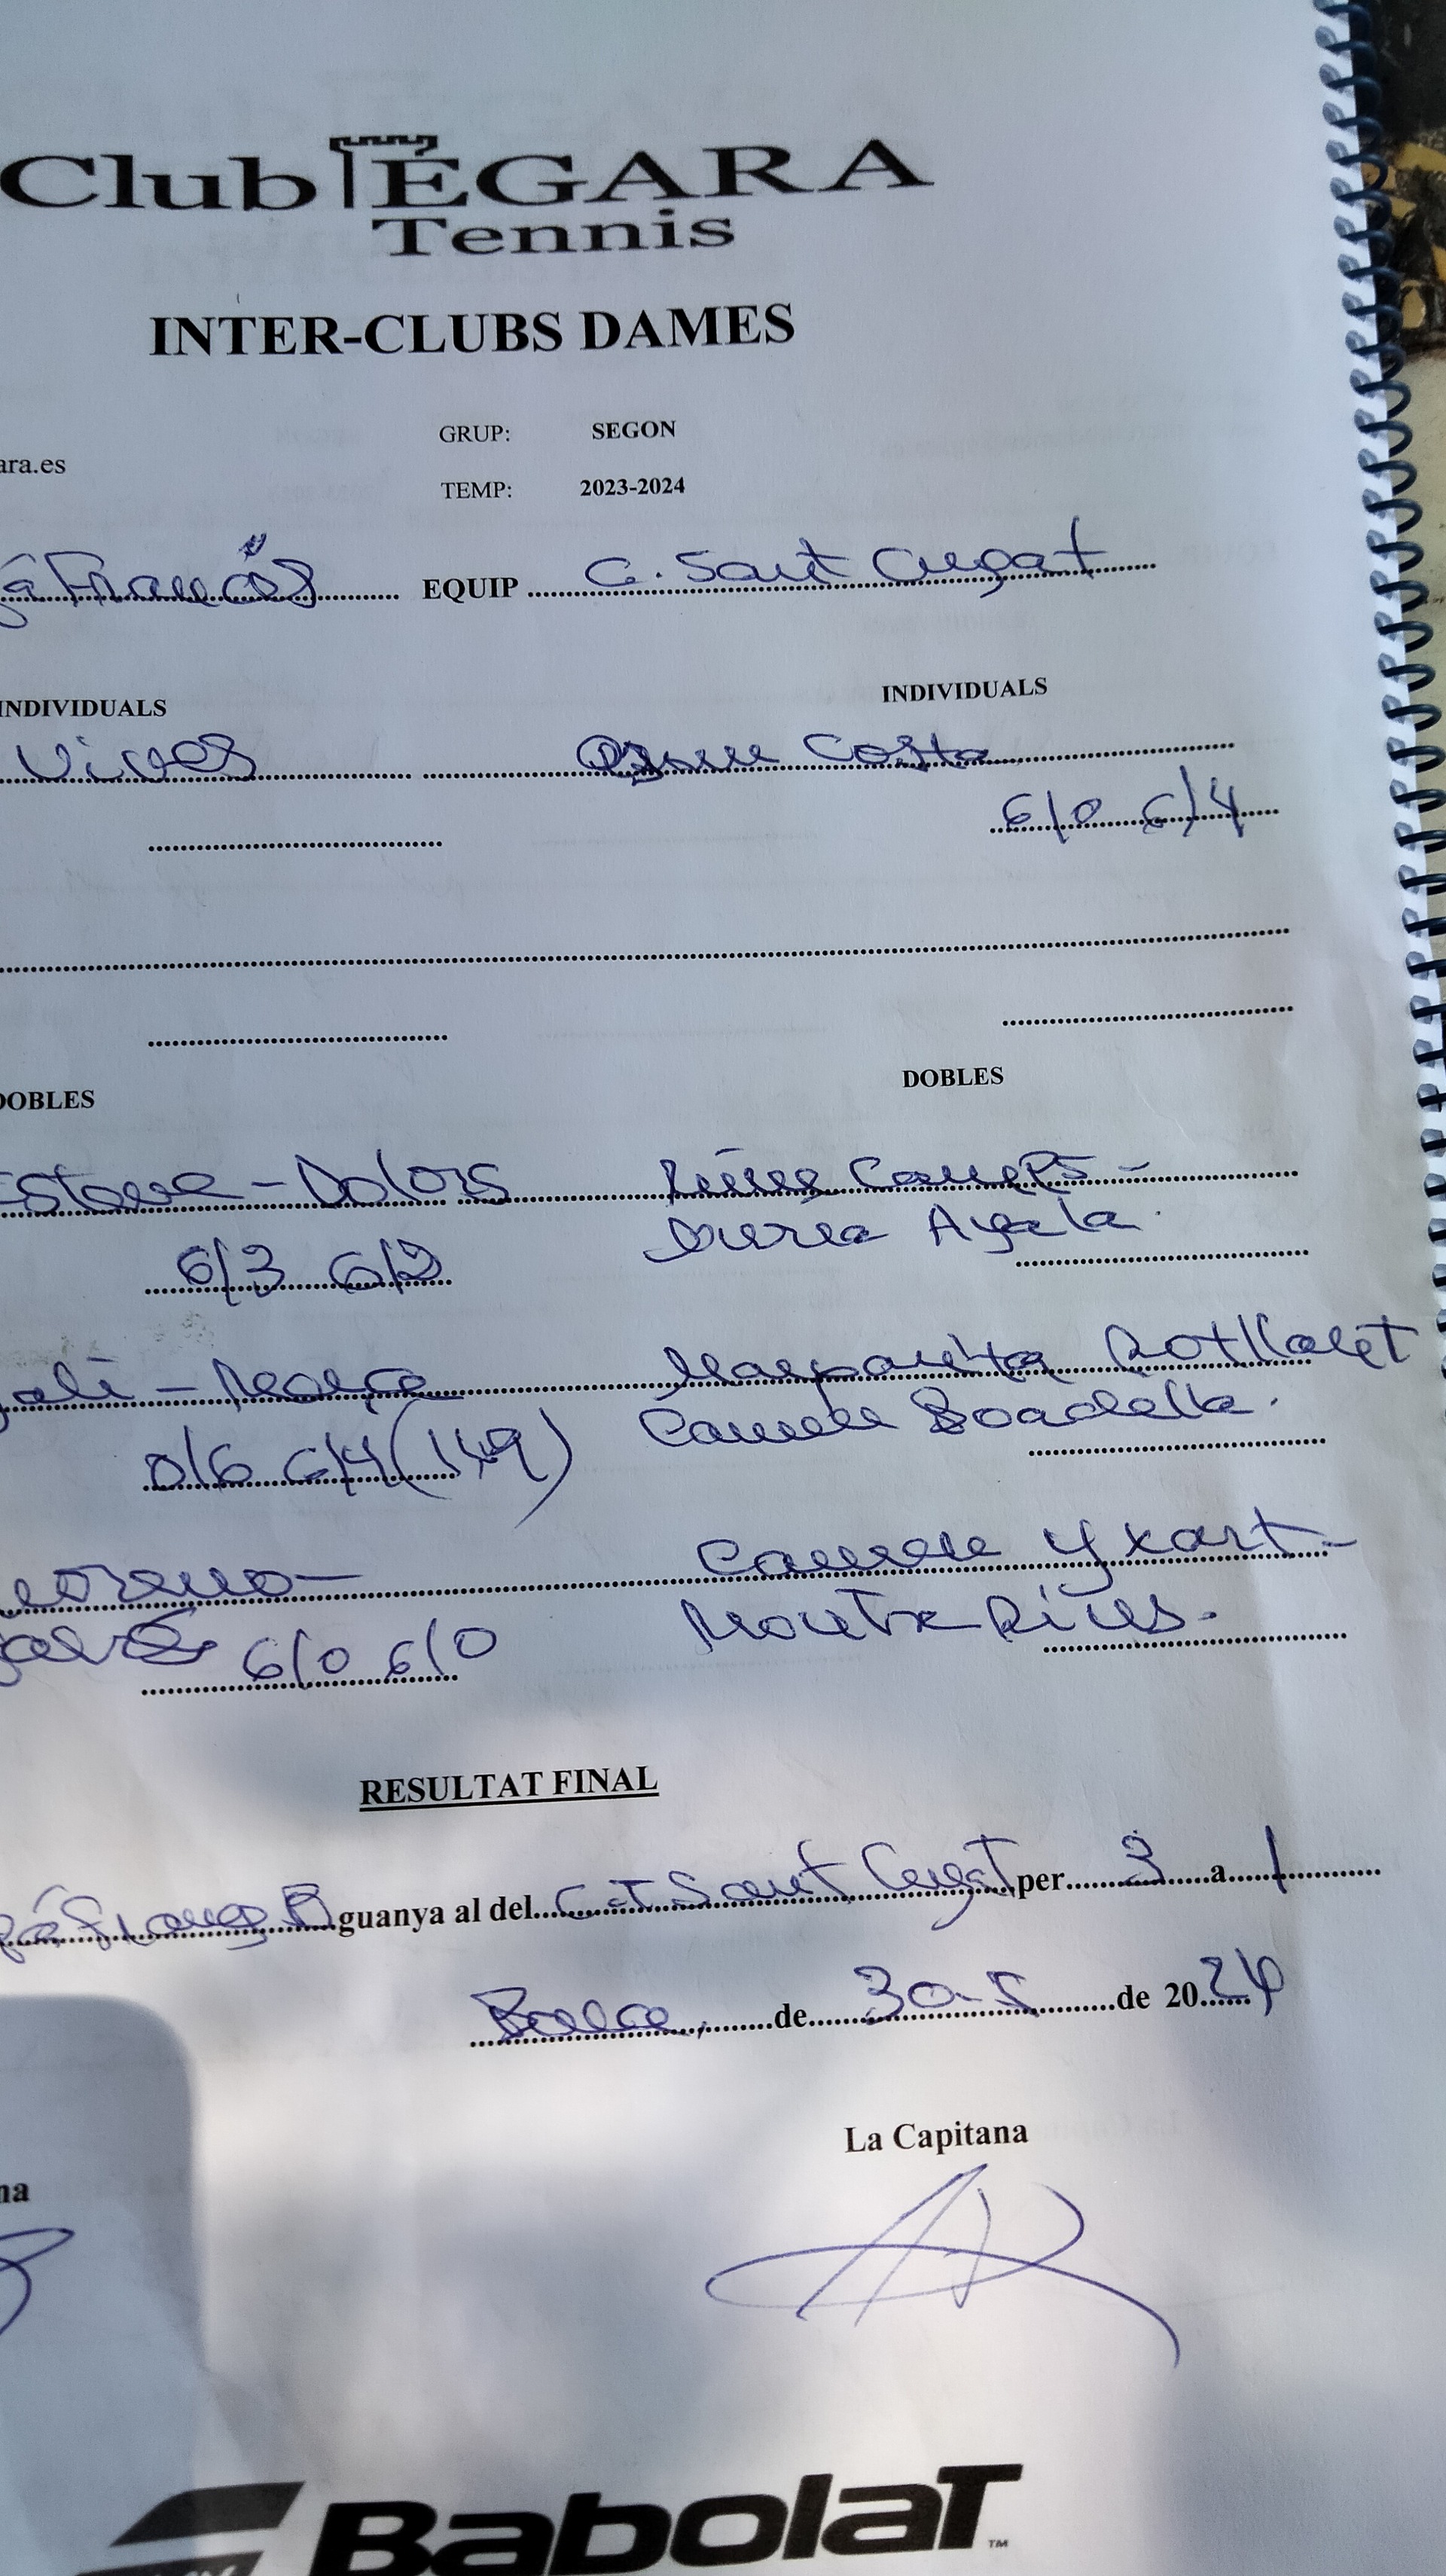 Club ÈGARA
Tennis
INTER-CLUBS DAMES
GRUP: SEGON
ara.es
TEMP: 2023-2024
EQUIP C. Sant Cugat
INDIVIDUALS INDIVIDUALS
Vives Costa
6/0 6/4
DOBLES DOBLES
Esteve - Dolors Camps -
Núria Ayala
6/3 6/2
Margarita Rotllant
Carmen Boadella.
0/6 6/4
Moreno - Carmen Yxart -
Montse Rius.
6/0 6/0
RESULTAT FINAL
guanya al del C.T. Sant Cugat per 3 a 1
de 30-5 de 2024
La Capitana
na
BabolaT
TM